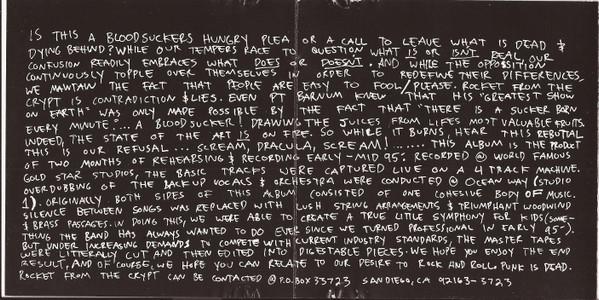 IS THIS A BLOODSUCKERS HUNGRY PLEA OR A CALL TO LEAVE WHAT IS DEAD &
DYING BEHIND? WHILE OUR TEMPERS RACE TO QUESTION WHAT IS OR ISNT REAL OUR
CONFUSION READILY EMBRACES WHAT DOES OR DOESNT. AND WHILE THE OPPOSITION
CONTINUOUSLY TOPPLE OVER THEMSELVES IN ORDER TO REDEFINE THEIR DIFFERENCES,
WE MAINTAIN THE FACT THAT PEOPLE ARE EASY TO FOOL/PLEASE. ROCKET FROM THE
CRYPT IS CONTRADICTION & LIES. EVEN PT BARNUM KNEW THAT HIS "GREATEST SHOW
ON EARTH" WAS ONLY MADE POSSIBLE BY THE FACT THAT "THERE IS A SUCKER BORN
EVERY MINUTE"... A BLOODSUCKER! DRAWING THE JUICES FROM LIFES MOST VALUABLE FRUITS.
INDEED, THE STATE OF THE ART IS ON FIRE. SO WHILE IT BURNS, HEAR THIS REBUTIAL
THIS IS OUR REFUSAL... SCREAM, DRACULA, SCREAM!...... THIS ALBUM IS THE PRODUCT
OF TWO MONTHS OF REHEARSING & RECORDING EARLY-MID 95. RECORDED @ WORLD FAMOUS
GOLD STAR STUDIOS, THE BASIC TRACKS WERE CAPTURED LIVE ON A 4 TRACK MACHINE.
OVERDUBBING OF THE BACKUP VOCALS & ORCHESTRA WERE CONDUCTED @ OCEAN WAY (STUDIO
1). ORIGINALLY. BOTH SIDES OF THIS ALBUM CONSISTED OF ONE COHESIVE BODY OF MUSIC.
SILENCE BETWEEN SONGS WAS REPLACED WITH LUSH STRING ARRANGEMENTS & TRIUMPHANT WOODWIND
& BRASS PASSAGES. IN DOING THIS, WE WERE ABLE TO CREATE A TRUE LITTLE SYMPHONY FOR KIDS (SOME-
THING THE BAND HAS ALWAYS WANTED TO DO EVER SINCE WE TURNED PROFESSIONAL IN EARLY 95).
BUT UNDER INCREASING DEMANDS TO COMPETE WITH CURRENT INDUSTRY STANDARDS, THE MASTER TAPES
WERE LITTERALLY CUT AND THEN EDITED INTO DIGESTABLE PIECES. WE HOPE YOU ENJOY THE END
RESULT, AND OF COURSE, WE HOPE YOU CAN RELATE TO OUR DESIRE TO ROCK AND ROLL. PUNK IS DEAD.
ROCKET FROM THE CRYPT CAN BE CONTACTED @ P.O. BOX 33723 SAN DIEGO, CA 92163-3723